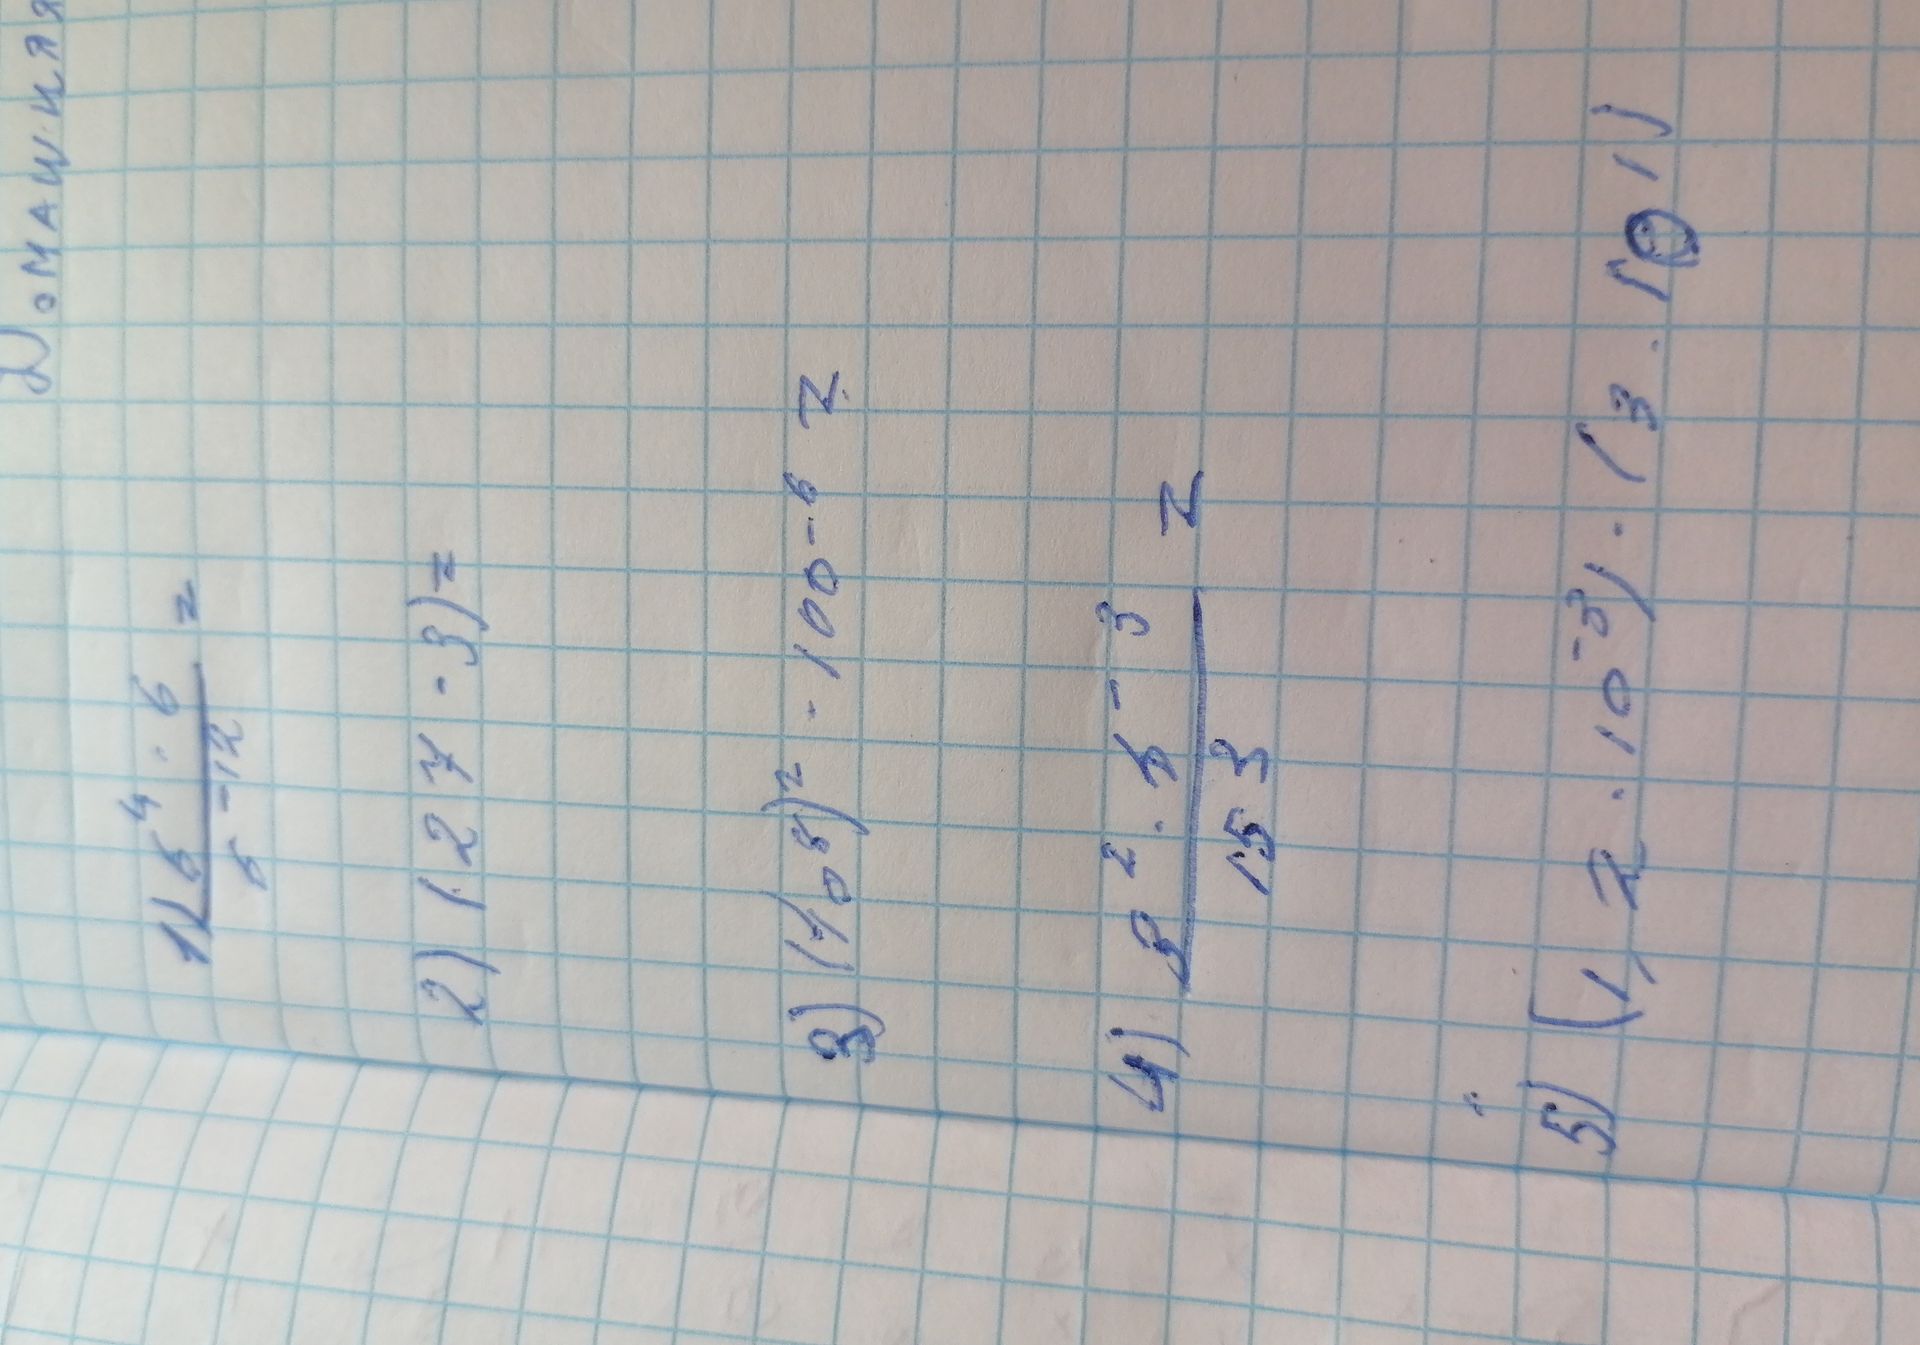 Домашняя
1) 6⁴ · 6
6⁻¹² =
2) (27 · 3) =
3) (10⁵)² · 100⁻⁶ =
4) 8² · 5⁻³
15 3 =
5) (1,2 · 10⁻³) · (3 · 10 1)